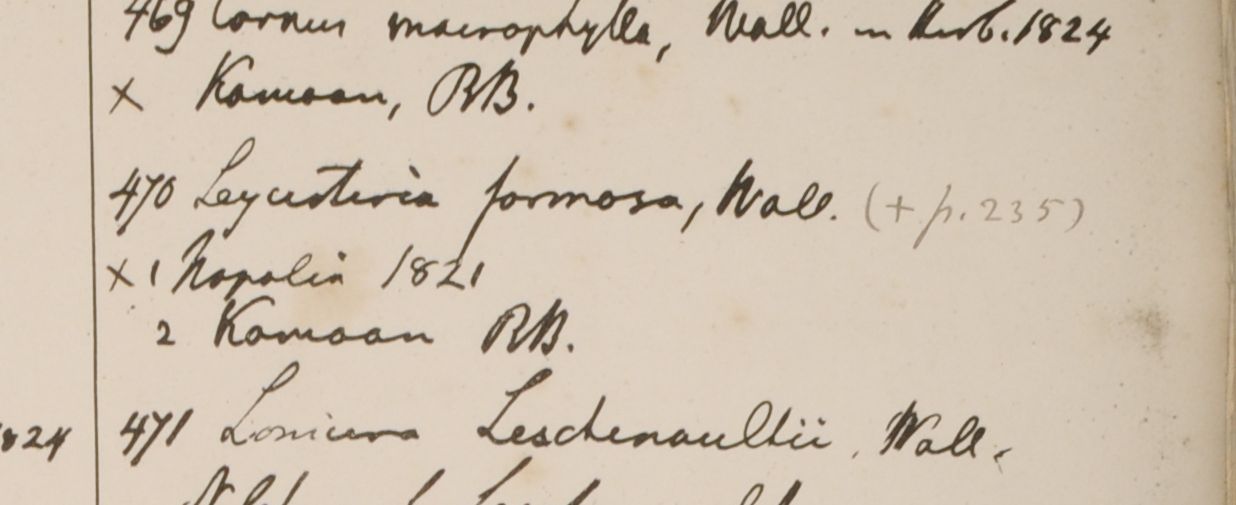 469 Cornus macrophylla, Wall. in Herb. 1824
× Kamaon, RB.
470 Leycesteria formosa, Wall. (+ p. 235)
× 1 Napalia 1821
2 Kamaon RB.
1824 471 Lonicera Leschenaultii, Wall.